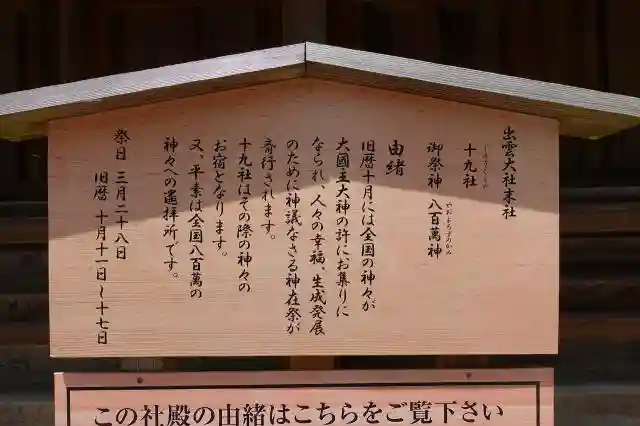 出雲大社末社
十九社
じゅうくしゃ
御祭神 八百萬神
やおよろずのかみ
由緒
旧暦十月には全国の神々が
大國主大神の許にお集りに
なられ、人々の幸福、生成発展
のために神議なさる神在祭が
斎行されます。
十九社はその際の神々の
お宿となります。
又、平素は全国八百萬の
神々への遙拝所です。
祭日 三月二十八日
旧暦 十月十一日～十七日
この社殿の由緒はこちらをご覧下さい